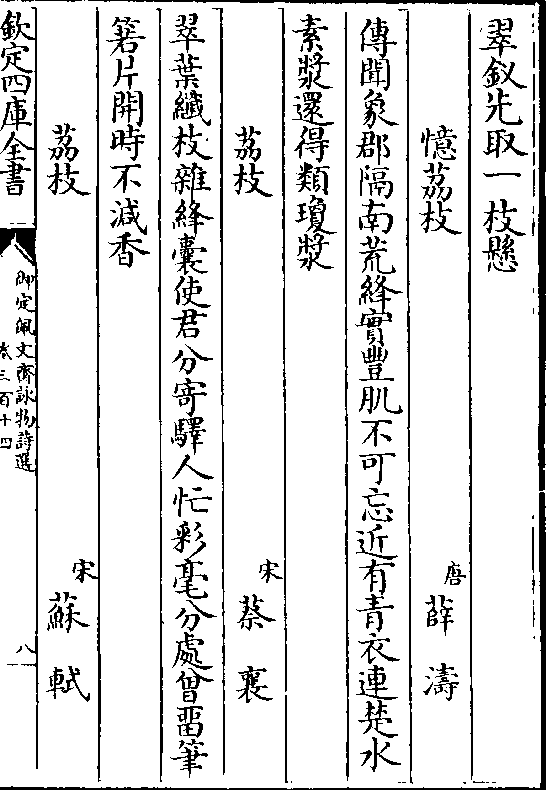 翠釵先取一枝懸
憶荔枝 唐 薛濤
傳聞象郡隔南荒絳實豐肌不可忘近有青衣連楚水
素漿還得類瓊漿
荔枝 宋 蔡襄
翠葉纖枝雜絳囊使君分寄驛人忙彩毫分處曾畱筆
箬片開時不減香
荔枝 宋 蘇軾
欽定四庫全書 御定佩文齋詠物詩選 卷三百十四 八